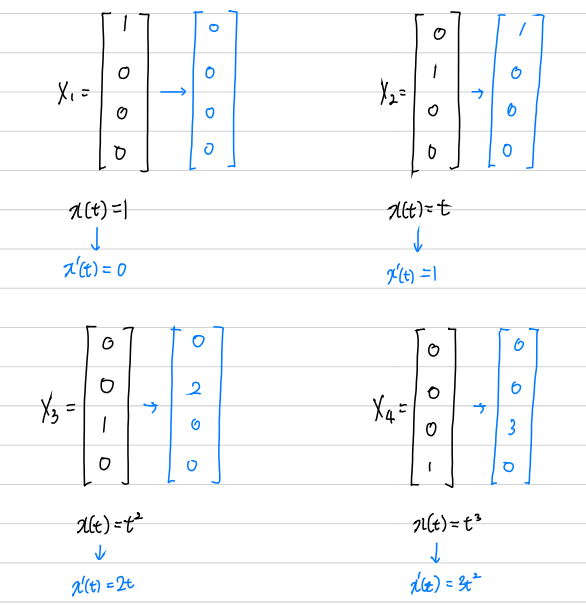 X₁ = [1 0 0 0] → [0 0 0 0]
x(t) = 1
↓
x'(t) = 0
X₂ = [0 1 0 0] → [1 0 0 0]
x(t) = t
↓
x'(t) = 1
X₃ = [0 0 1 0] → [0 2 0 0]
x(t) = t²
↓
x'(t) = 2t
X₄ = [0 0 0 1] → [0 0 3 0]
x(t) = t³
↓
x'(t) = 3t²